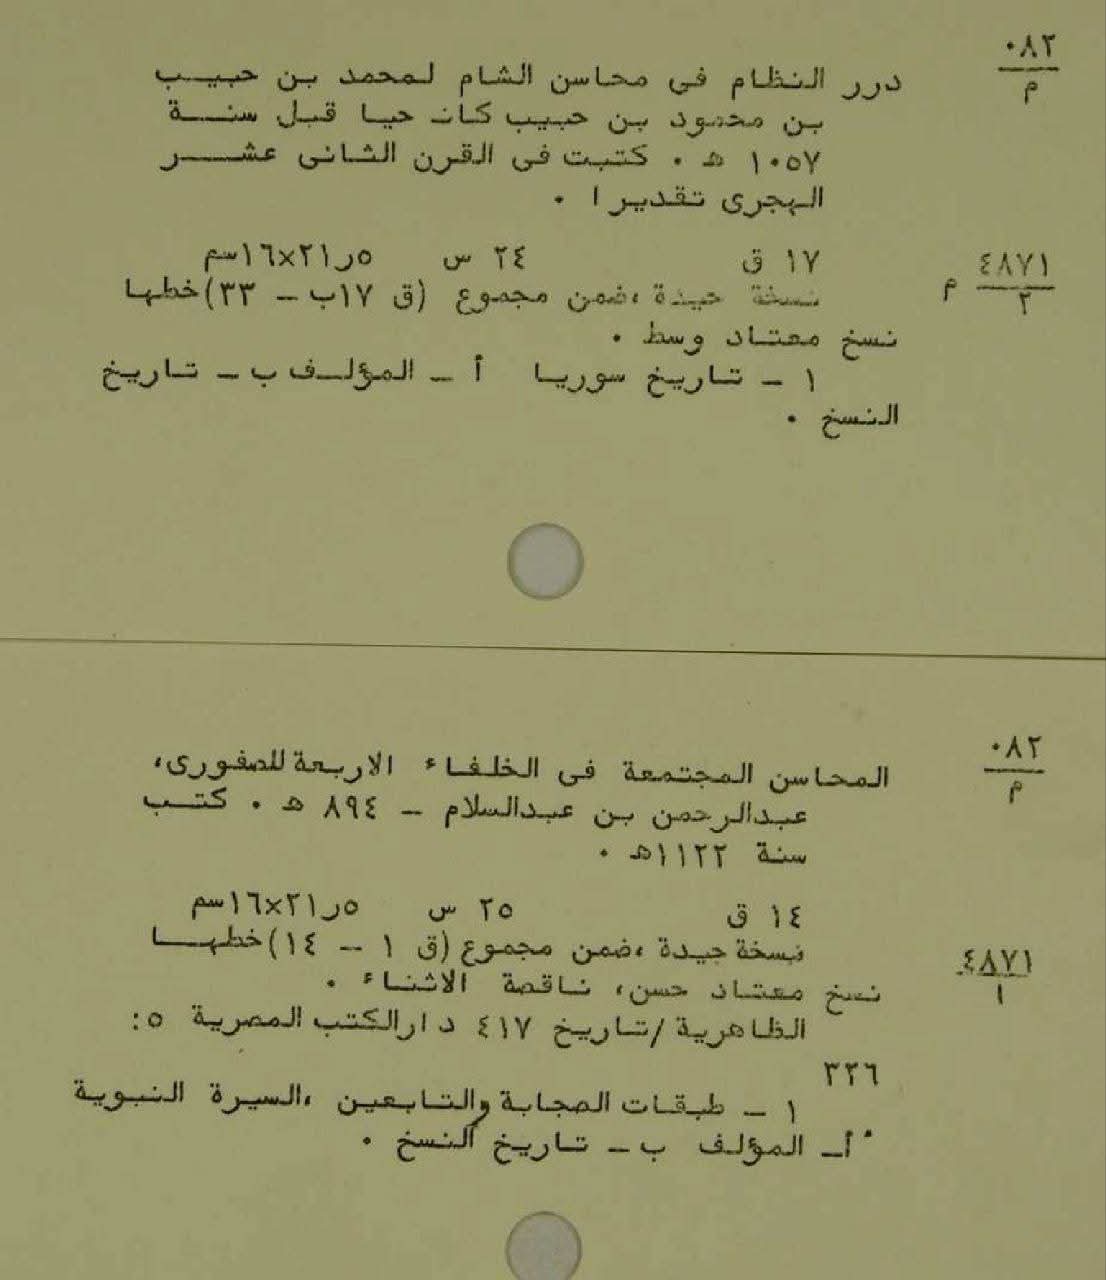 ٠٨٢
م
درر النظام فى محاسن الشام لمحمد بن حبيب
بن محمود بن حبيب كان حيا قبل سنة
١٠٥٧ هـ . كتبت فى القرن الثانى عشر
الهجرى تقديرا .
١٧ ق ٢٤ س ٥ر٢١×١٦سم
٤٨٧١
٢ م
نسخة جيدة ،ضمن مجموع (ق ١٧ب - ٣٣)خطها
نسخ معتاد وسط .
١ - تاريخ سوريا أ - المؤلف ب - تاريخ
النسخ .
٠٨٢
م
المحاسن المجتمعة فى الخلفاء الاربعة للصفورى،
عبدالرحمن بن عبدالسلام - ٨٩٤ هـ . كتب
سنة ١١٢٢هـ .
١٤ ق ٢٥ س ٥ر٢١×١٦سم
٤٨٧١
١
نسخة جيدة ،ضمن مجموع (ق ١ - ١٤)خطها
نسخ معتاد حسن، ناقصة الاثناء .
الظاهرية /تاريخ ٤١٧ دارالكتب المصرية ٥:
٣٢٦
١ - طبقات الصحابة والتابعين ،السيرة النبوية
أ- المؤلف ب - تاريخ النسخ .